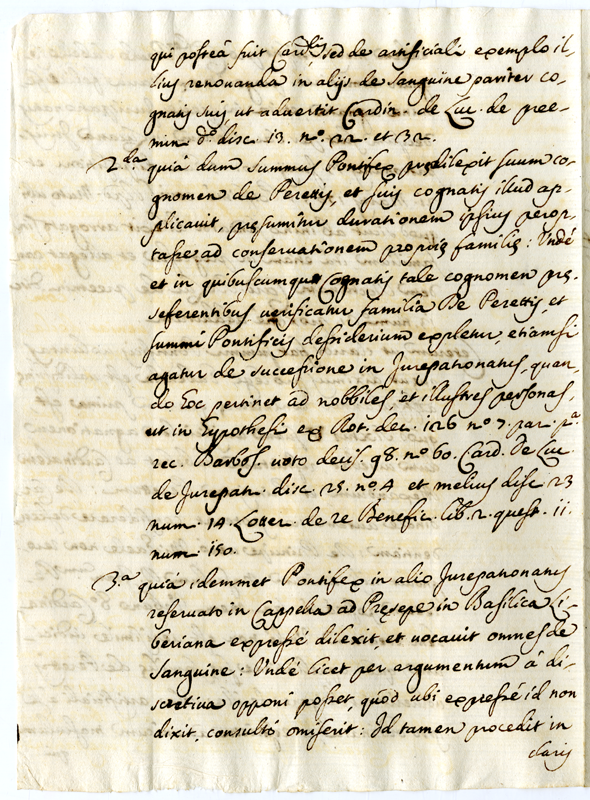 qui posteà fuit Card.lis sed de artificiali exemplo il-
lius renouanda in alijs de sanguine pariter co-
gnatis suis, ut aduertit Cardin. de Luc. de pree-
min. d.o disc. 13. n.o 22. et 32.
2.da quià dum Summus Pontifex prędilexit suum co-
gnomen de Perettis, et suis cognatis illud ap-
plicauit, pręsumitur durationem ipsius perop-
tasse ad conseruationem proprię familię: Undè
et in quibuscumque Cognatis tale cognomen prę-
seferentibus uerificatur familia De Perettis, et
summi Pontificis desiderium expletur, etiamsi
agatur de successione in Jurepatronatus, quan-
do hoc pertinet ad nobbiles, et illustres personas,
ut in hypothesi ex Rot. dec. 126 n.o 7. par. p.a
rec. Barbos. uoto decis. 98. n.o 60. Card. de Luc.
de Jurepatr. disc. 25. n.o 4 et melius disc. 23
num. 14. Lotter. de re Benefic. lib. 2. quest. 11.
num. 150.
3.a quià idemmet Pontifex in alio Jurepatronatus
reseruato in Cappella ad Pręsepe in Basilica Li-
beriana expressè dilexit, et uocauit omnes de
sanguine: Undè licet per argumentum à di-
scretiua opponi posset, quòd ubi expressè id non
dixit, consultò omiserit: Id tamen procedit in
claris